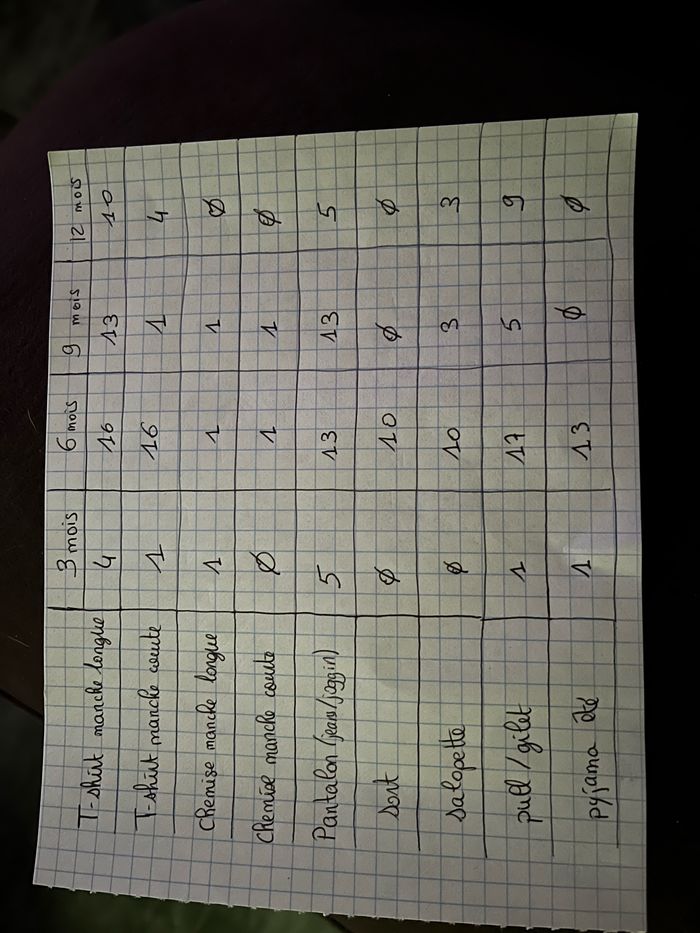 3 mois 6 mois 9 mois 12 mois
T-shirt manche longue 4 16 13 10
T-shirt manche courte 1 16 1 4
Chemise manche longue 1 1 1 Ø
Chemise manche courte Ø 1 1 Ø
Pantalon (jeans/joggin) 5 13 13 5
sort Ø 10 Ø Ø
salopette Ø 10 3 3
pull/gilet 1 17 5 9
pyjama été 1 13 Ø Ø